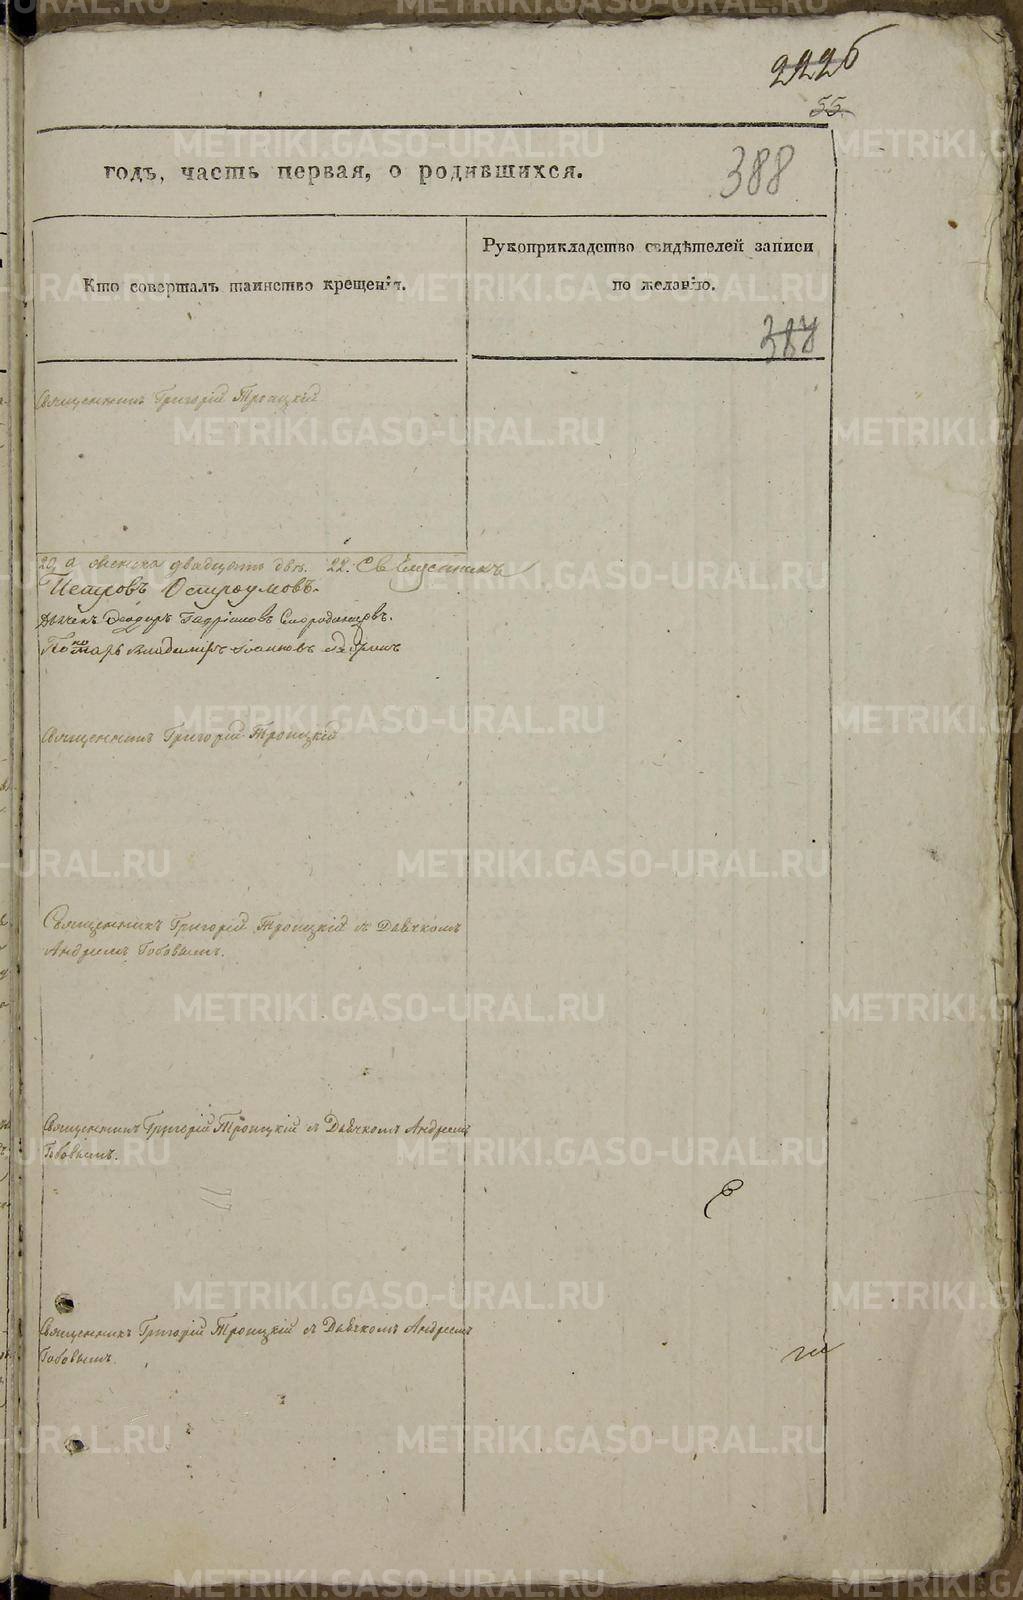 2226
55.
годъ, часть первая, о родившихся.
388
Кто совершалъ таинство крещенія.
Рукоприкладство свидѣтелей записи
по желанію.
Священникъ Григорій Троицкій
двадцать двѣ. 22. Священникъ
Петровъ Остроумовъ.
Дьячекъ Феодоръ
Пономарь Владимиръ Іоанновъ
Священникъ Григорій Троицкій
Священникъ Григорій Троицкій съ Дьячкомъ
Андреемъ Бобовымъ.
Священникъ Григорій Троицкій съ Дьячкомъ Андреемъ
Бобовымъ.
Священникъ Григорій Троицкій съ Дьячкомъ Андреемъ
Бобовымъ.
METRIKI.GASO-URAL.RU